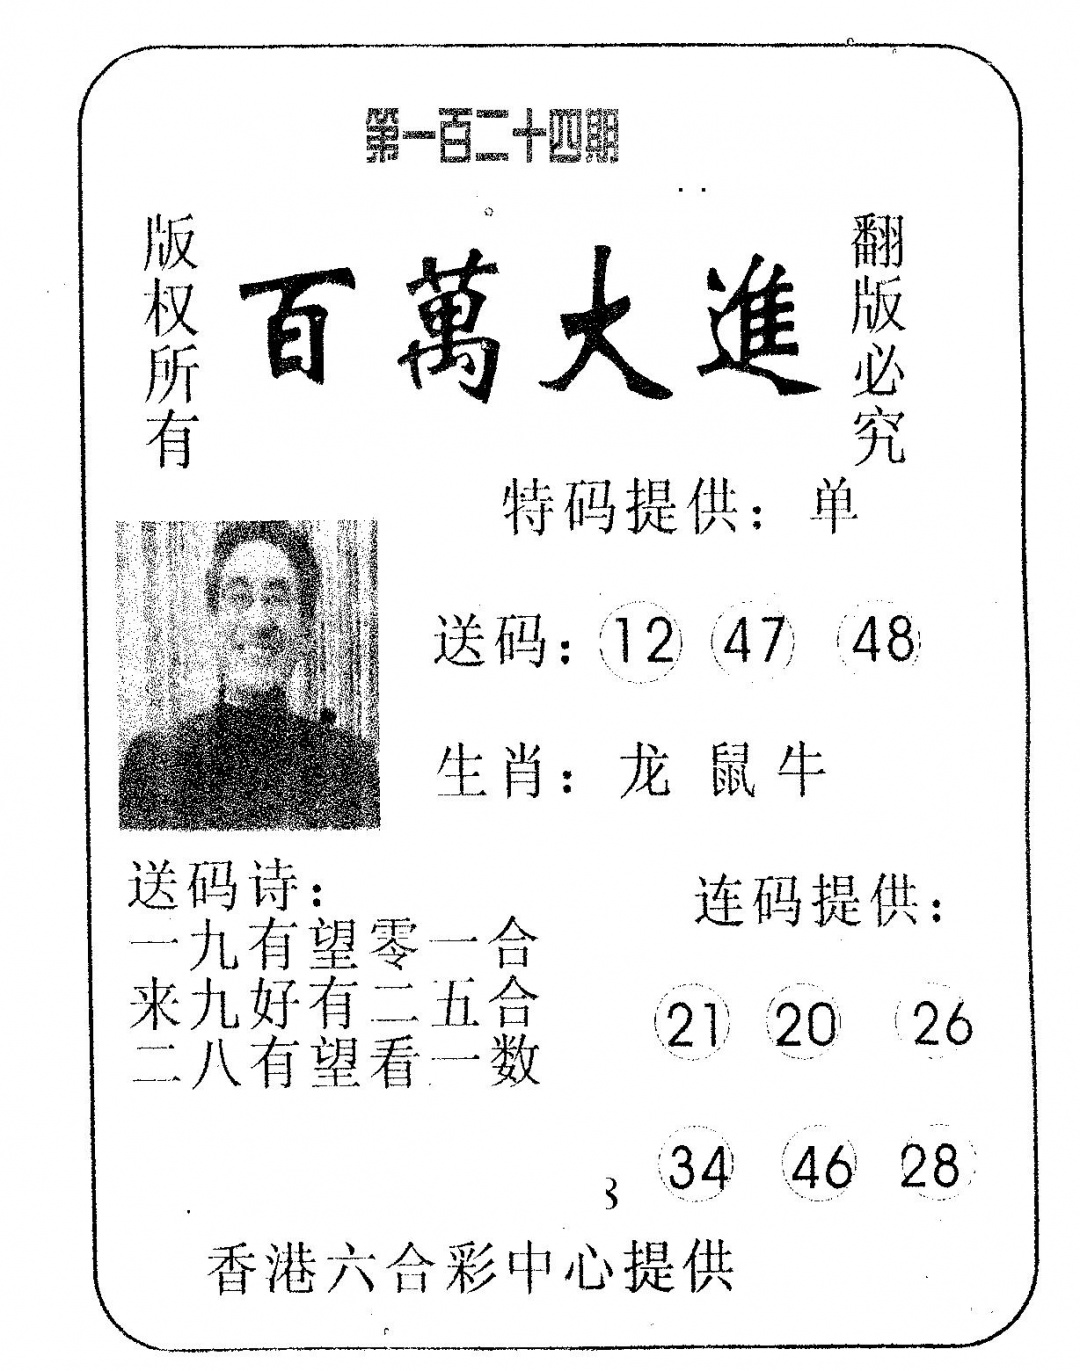 第一百二十四期
版权所有
百萬大進
翻版必究
特码提供：单
送码：12 47 48
生肖：龙 鼠 牛
送码诗：
一九有望零一合
来九好有二五合
二八有望看一数
连码提供：
21 20 26
34 46 28
香港六合彩中心提供